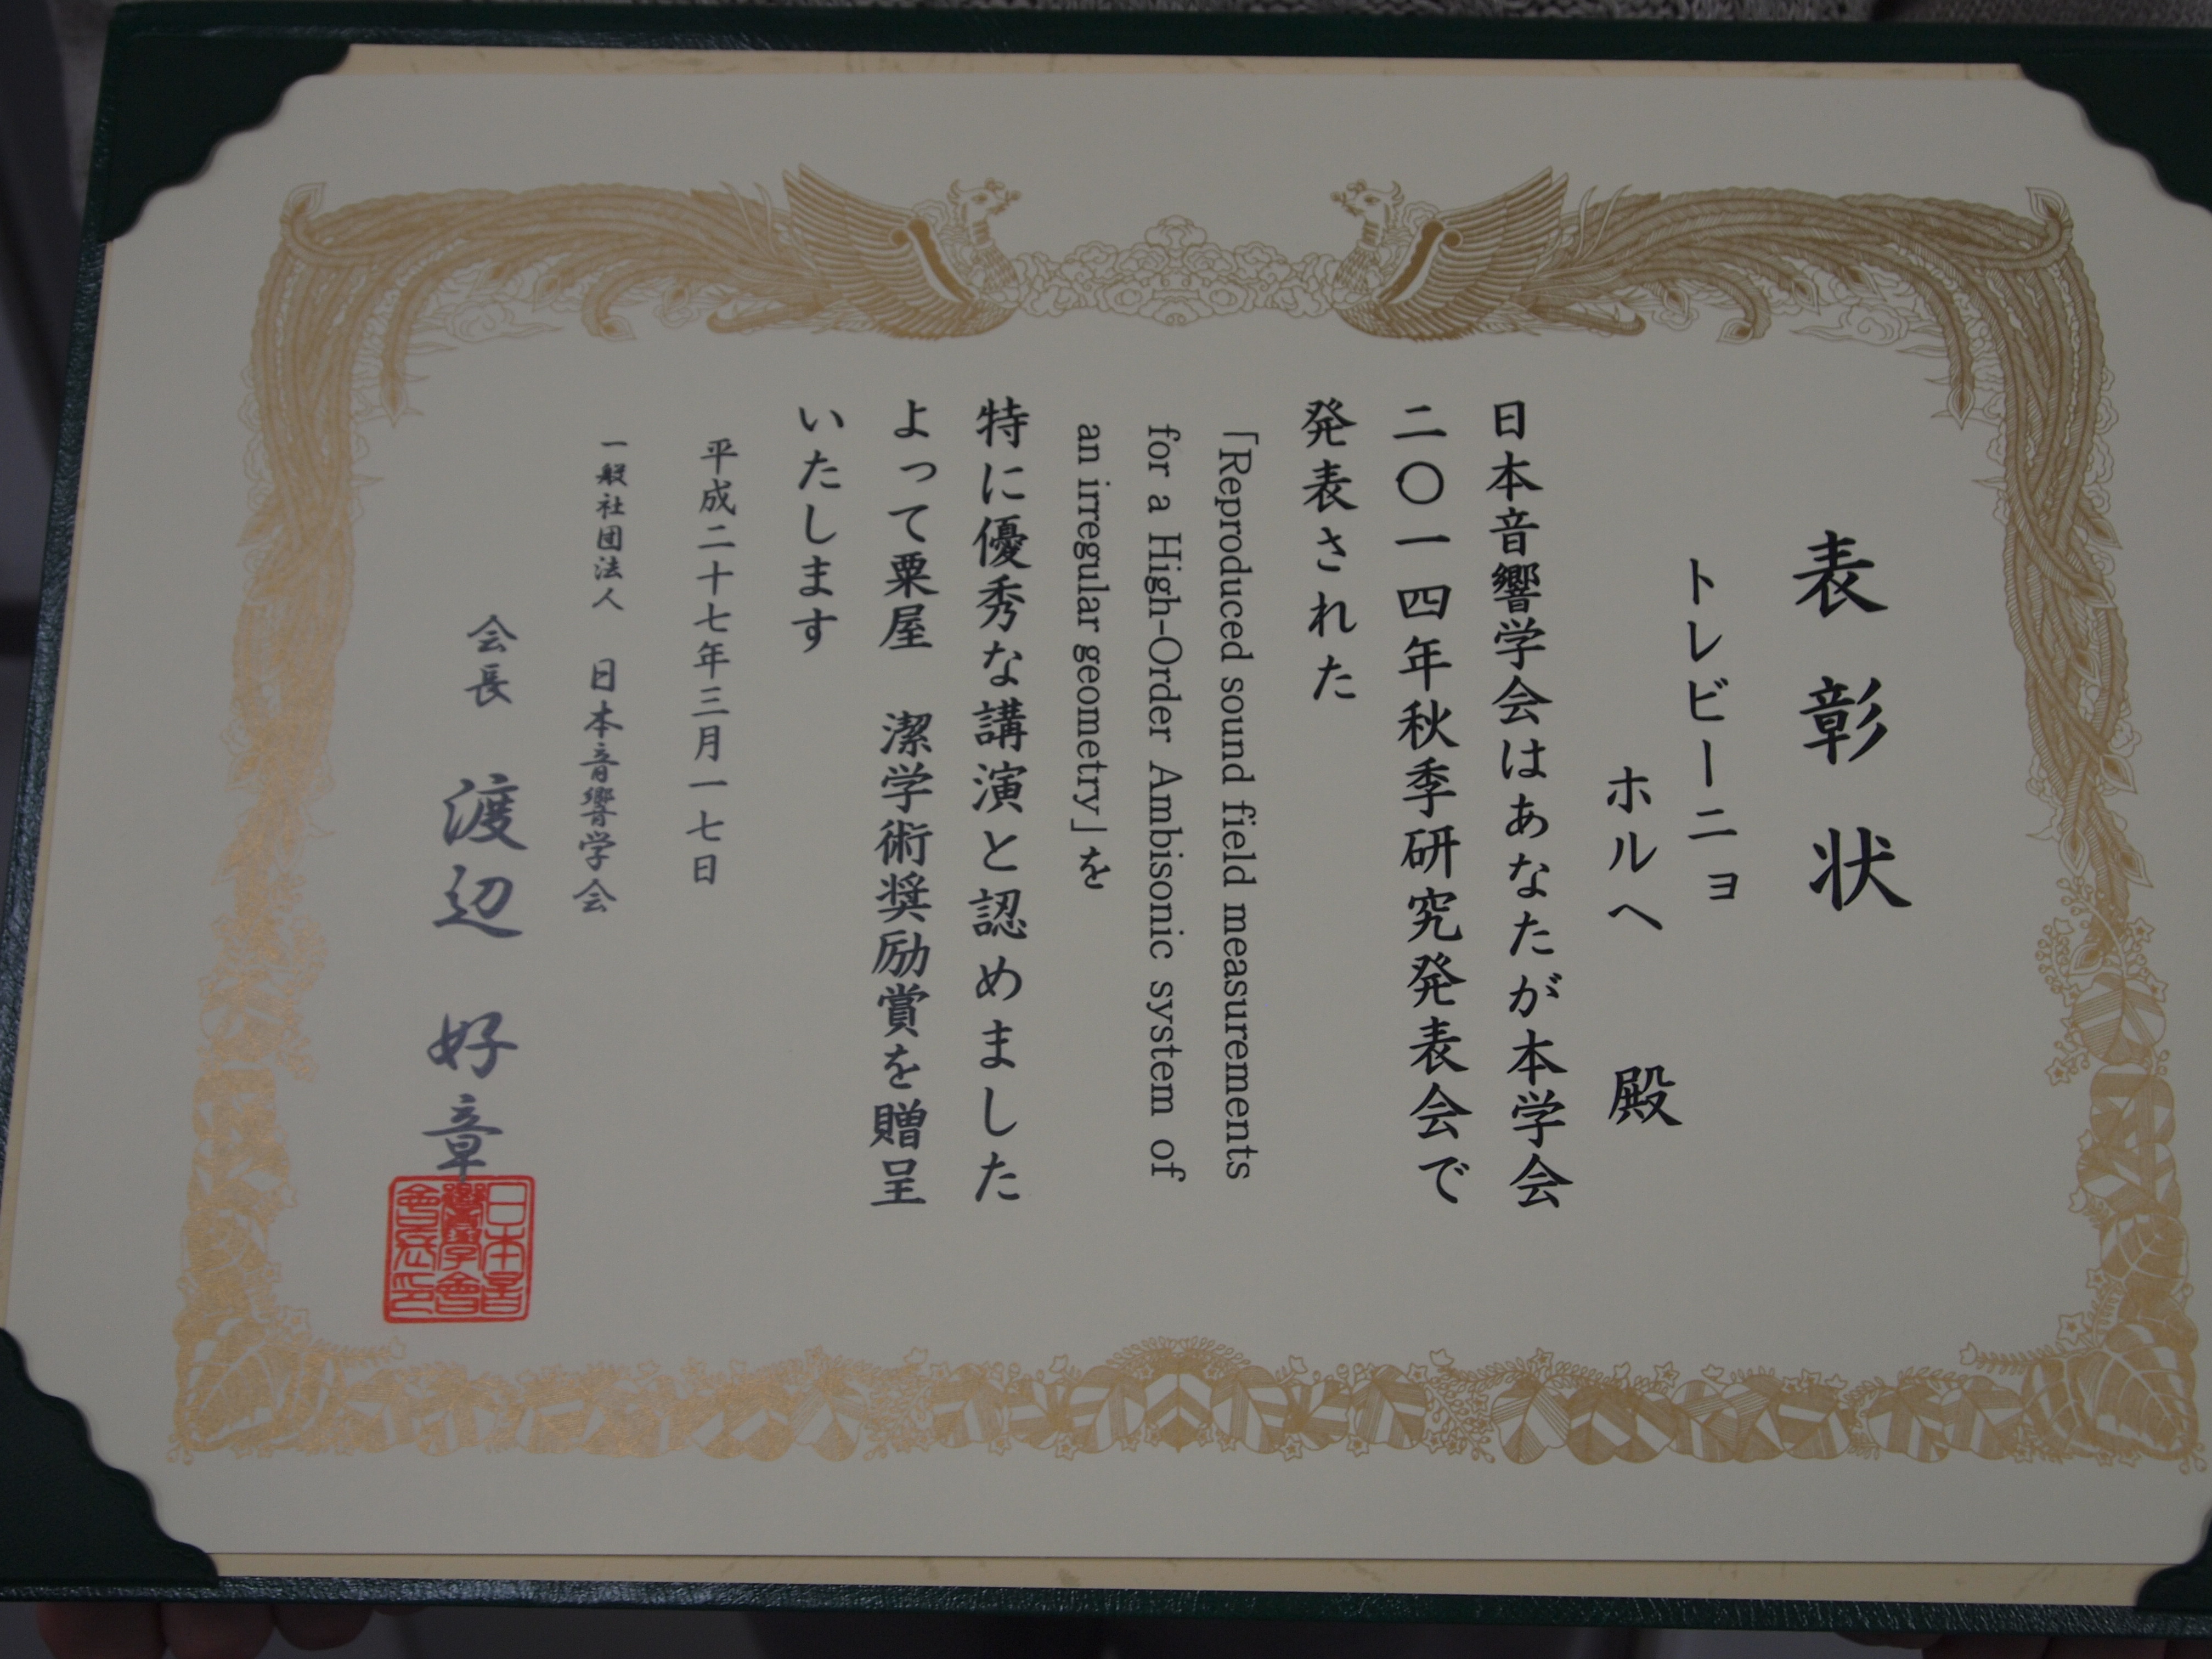 表彰状
トレビーニョ
ホルヘ 殿
日本音響学会はあなたが本学会
二〇一四年秋季研究発表会で
発表された
「Reproduced sound field measurements
for a High-Order Ambisonic system of
an irregular geometry」を
特に優秀な講演と認めました
よって粟屋 潔学術奨励賞を贈呈
いたします
平成二十七年三月一七日
一般社団法人 日本音響学会
会長 渡辺 好章
日本音
響學會
會長印